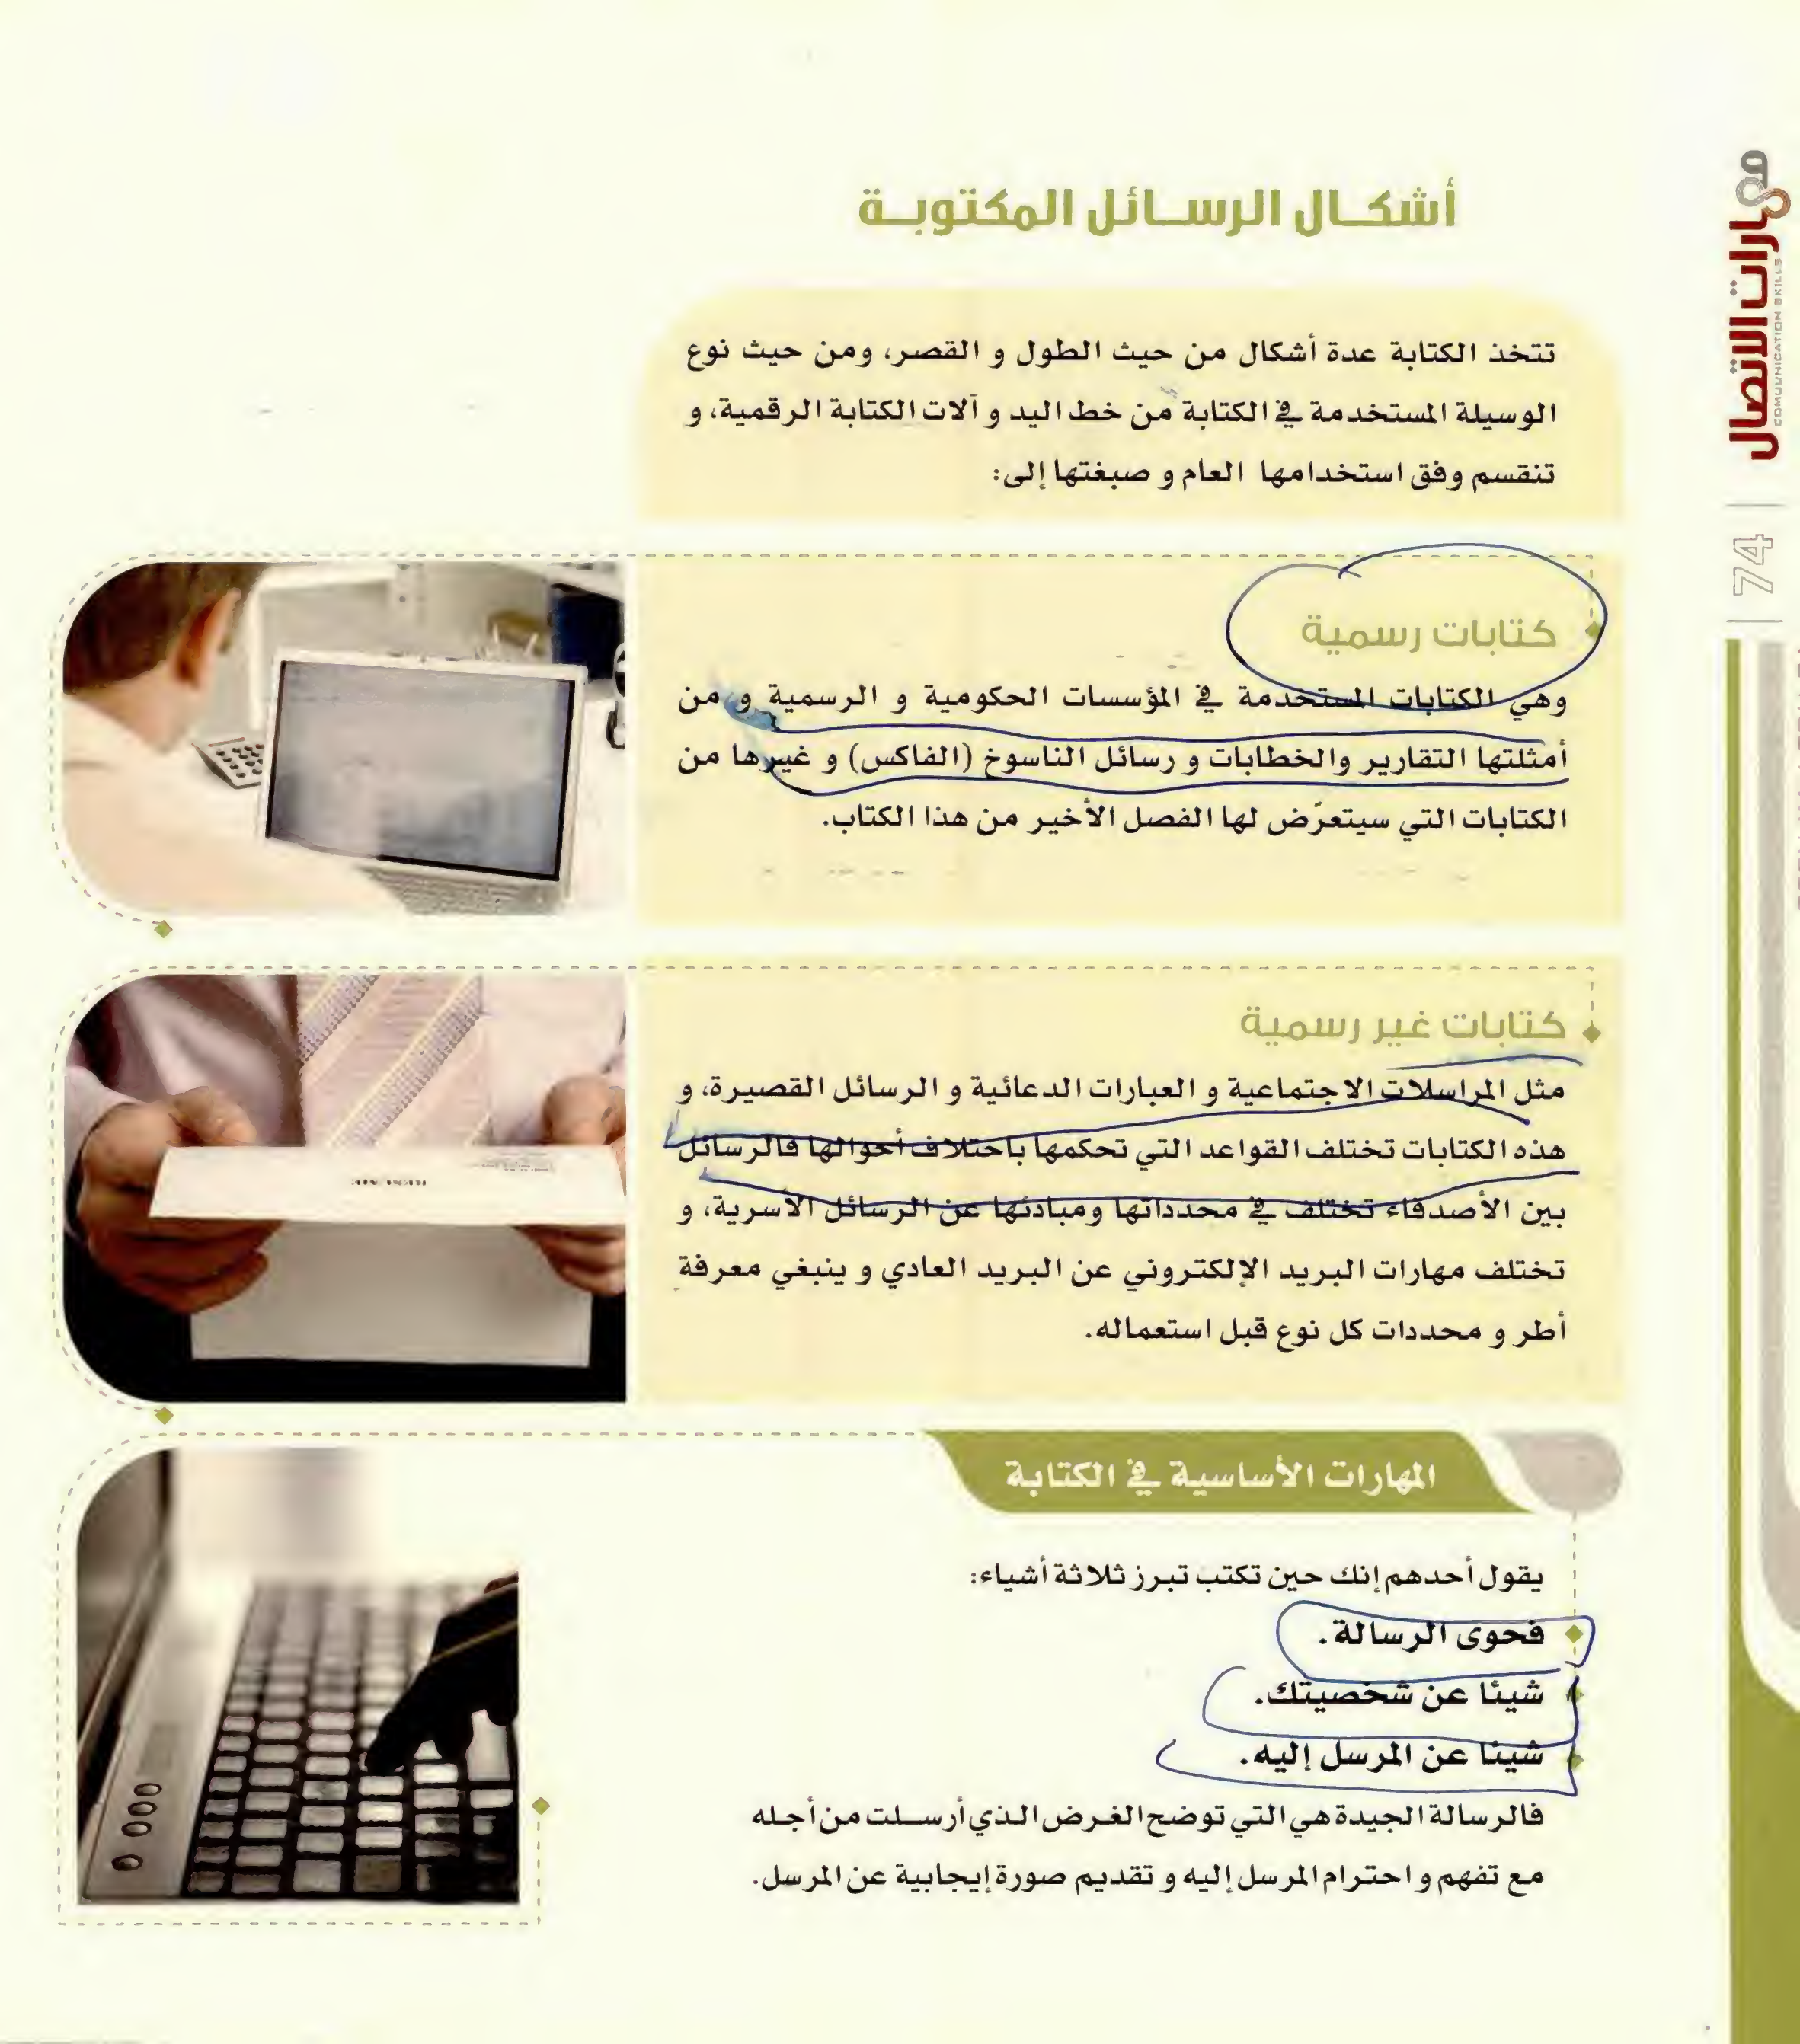 مهارات الاتصال
COMMUNICATION SKILLS
74
أشكال الرسائل المكتوبة
تتخذ الكتابة عدة أشكال من حيث الطول و القصر، ومن حيث نوع
الوسيلة المستخدمة في الكتابة من خط اليد و آلات الكتابة الرقمية، و
تنقسم وفق استخدامها العام و صبغتها إلى:
كتابات رسمية
وهي الكتابات المستخدمة في المؤسسات الحكومية و الرسمية و من
أمثلتها التقارير والخطابات و رسائل الناسوخ (الفاكس) و غيرها من
الكتابات التي سيتعرّض لها الفصل الأخير من هذا الكتاب.
كتابات غير رسمية
مثل المراسلات الاجتماعية و العبارات الدعائية و الرسائل القصيرة، و
هذه الكتابات تختلف القواعد التي تحكمها باختلاف أحوالها فالرسائل
بين الأصدقاء تختلف في محدداتها ومبادئها عن الرسائل الأسرية، و
تختلف مهارات البريد الإلكتروني عن البريد العادي و ينبغي معرفة
أطر و محددات كل نوع قبل استعماله.
المهارات الأساسية في الكتابة
يقول أحدهم إنك حين تكتب تبرز ثلاثة أشياء:
فحوى الرسالة.
شيئا عن شخصيتك.
شيئا عن المرسل إليه.
فالرسالة الجيدة هي التي توضح الغرض الذي أرسلت من أجله
مع تفهم و احترام المرسل إليه و تقديم صورة إيجابية عن المرسل.